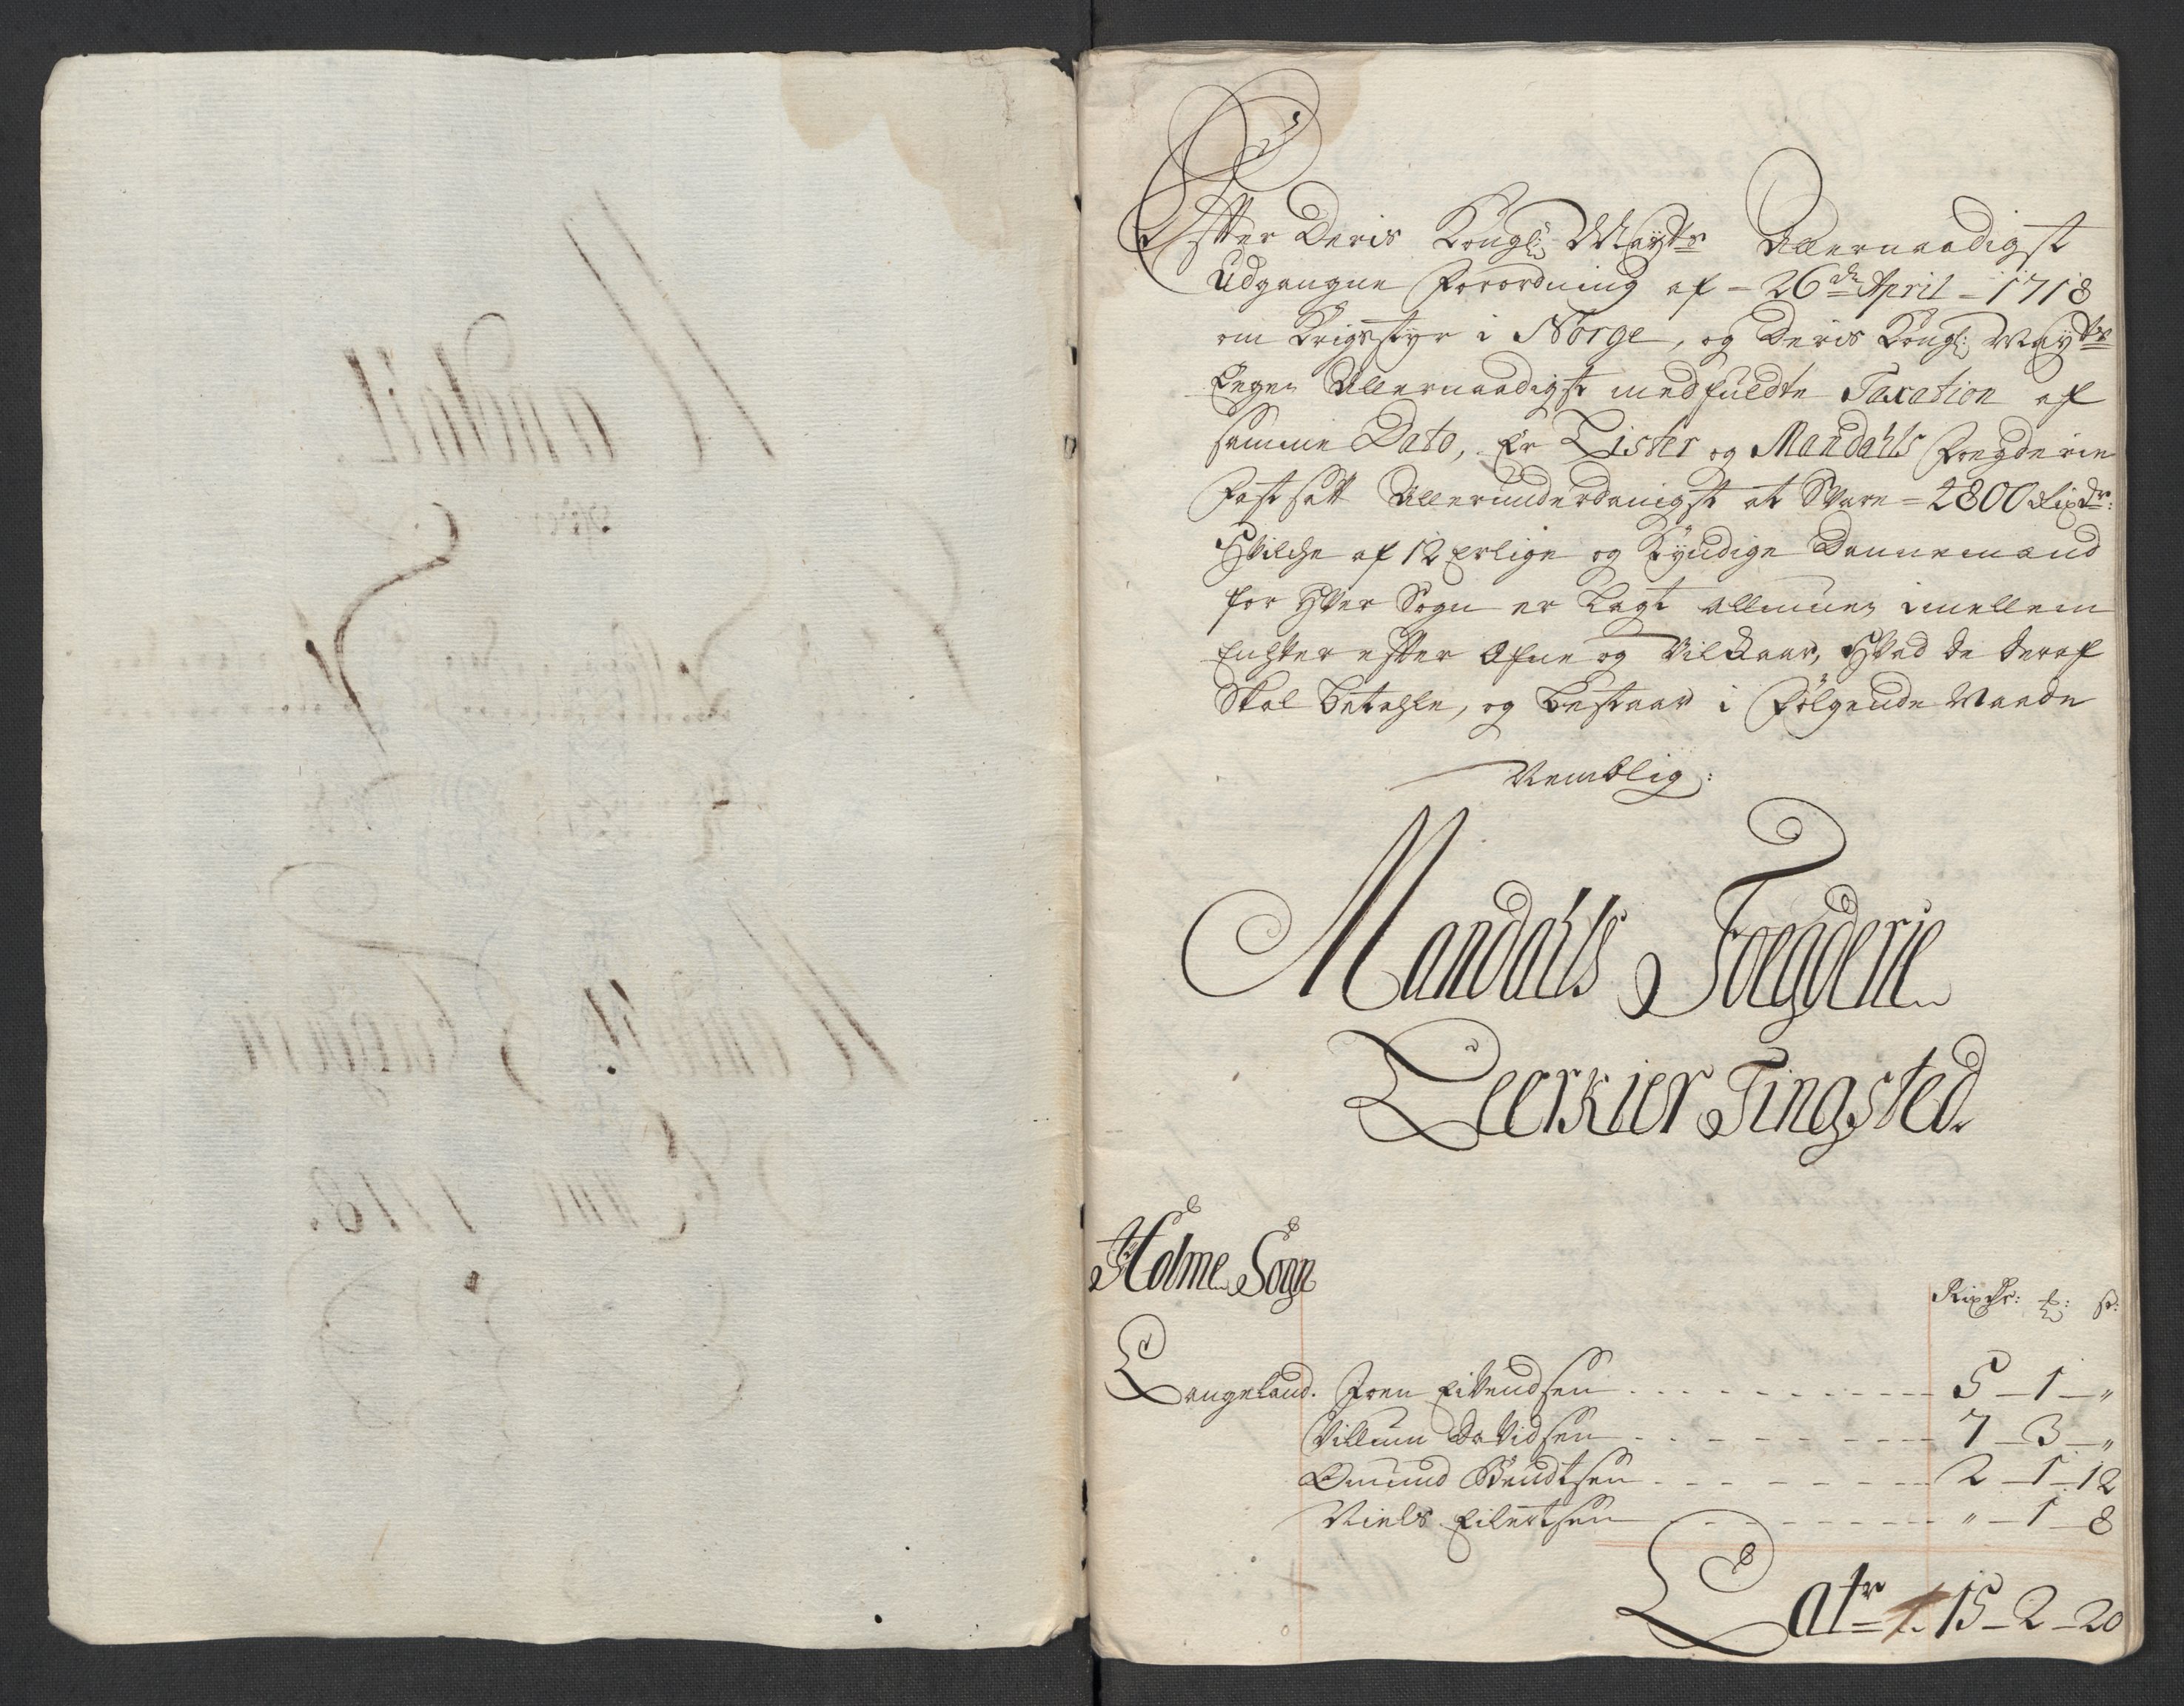 Efter Deris Kongl: Mayts Allernaadigst
Udgangne Forordning af - 26de April - 1718
om Krigsstyr i Norge, og Deris Kongl: Mayts
Egen Allernaadigst medfuldte Taxation af
samme Dato, Er Lister og Mandahls Foegderie
Fast satt Allerunderdanigst at Svare - 2800 Rixdr:
Hvilche af 12 Erlige og Kyndige Dannemænd
for Hver Sogn er Lagt Allmuen imellem
Enhver efter Æfne og Vilkaar, Hvad de deraf
Skal betahle, og bestaar i Følgende Maade
Nemblig:
Mandahls Foegderie
Leerkier Tingsted
Holme Sogn
Rixdr: ß:
Langeland. Joen Eivendsen - 5 - 1 - "
Villum Davidsen - 7 - 3 - "
Omund Bendtsen - 2 - 1 - 12
Niels Eilertsen - " - 1 - 8
Latr 15 - 2 - 20